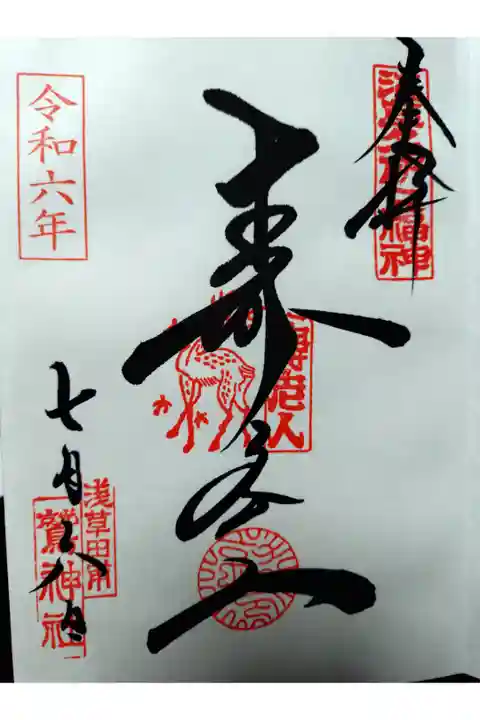 奉拝
浅草名所七福神
寿老人
寿老人
令和六年
七月二八日
浅草田甫
鷲神社